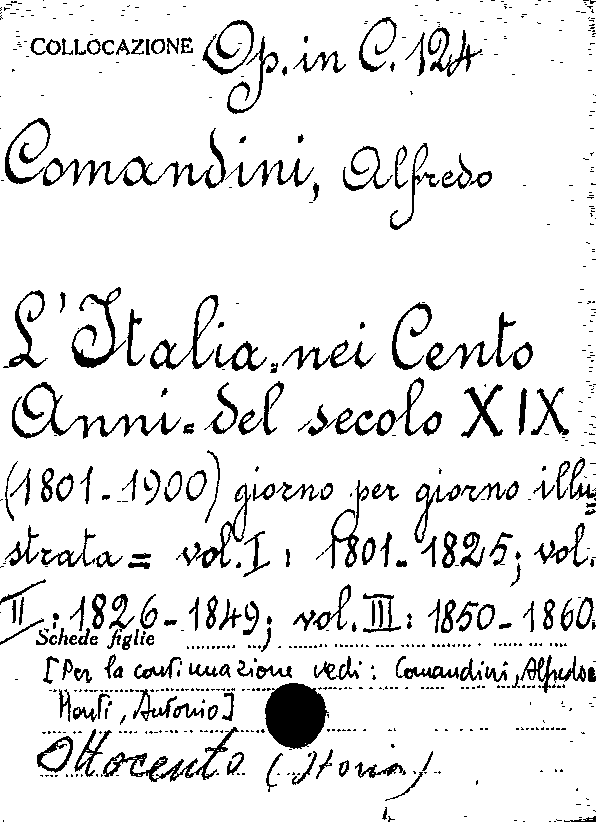 COLLOCAZIONE Op. in C. 124
Comandini, Alfredo
L'Italia nei Cento
Anni = del secolo XIX
(1801-1900) giorno per giorno illu=
strata = vol. I: 1801-1825; vol.
II: 1826-1849; vol. III: 1850-1860.
Schede figlie
[Per la continuazione vedi: Comandini, Alfredo e
Monti, Antonio]
Ottocento (Storia)